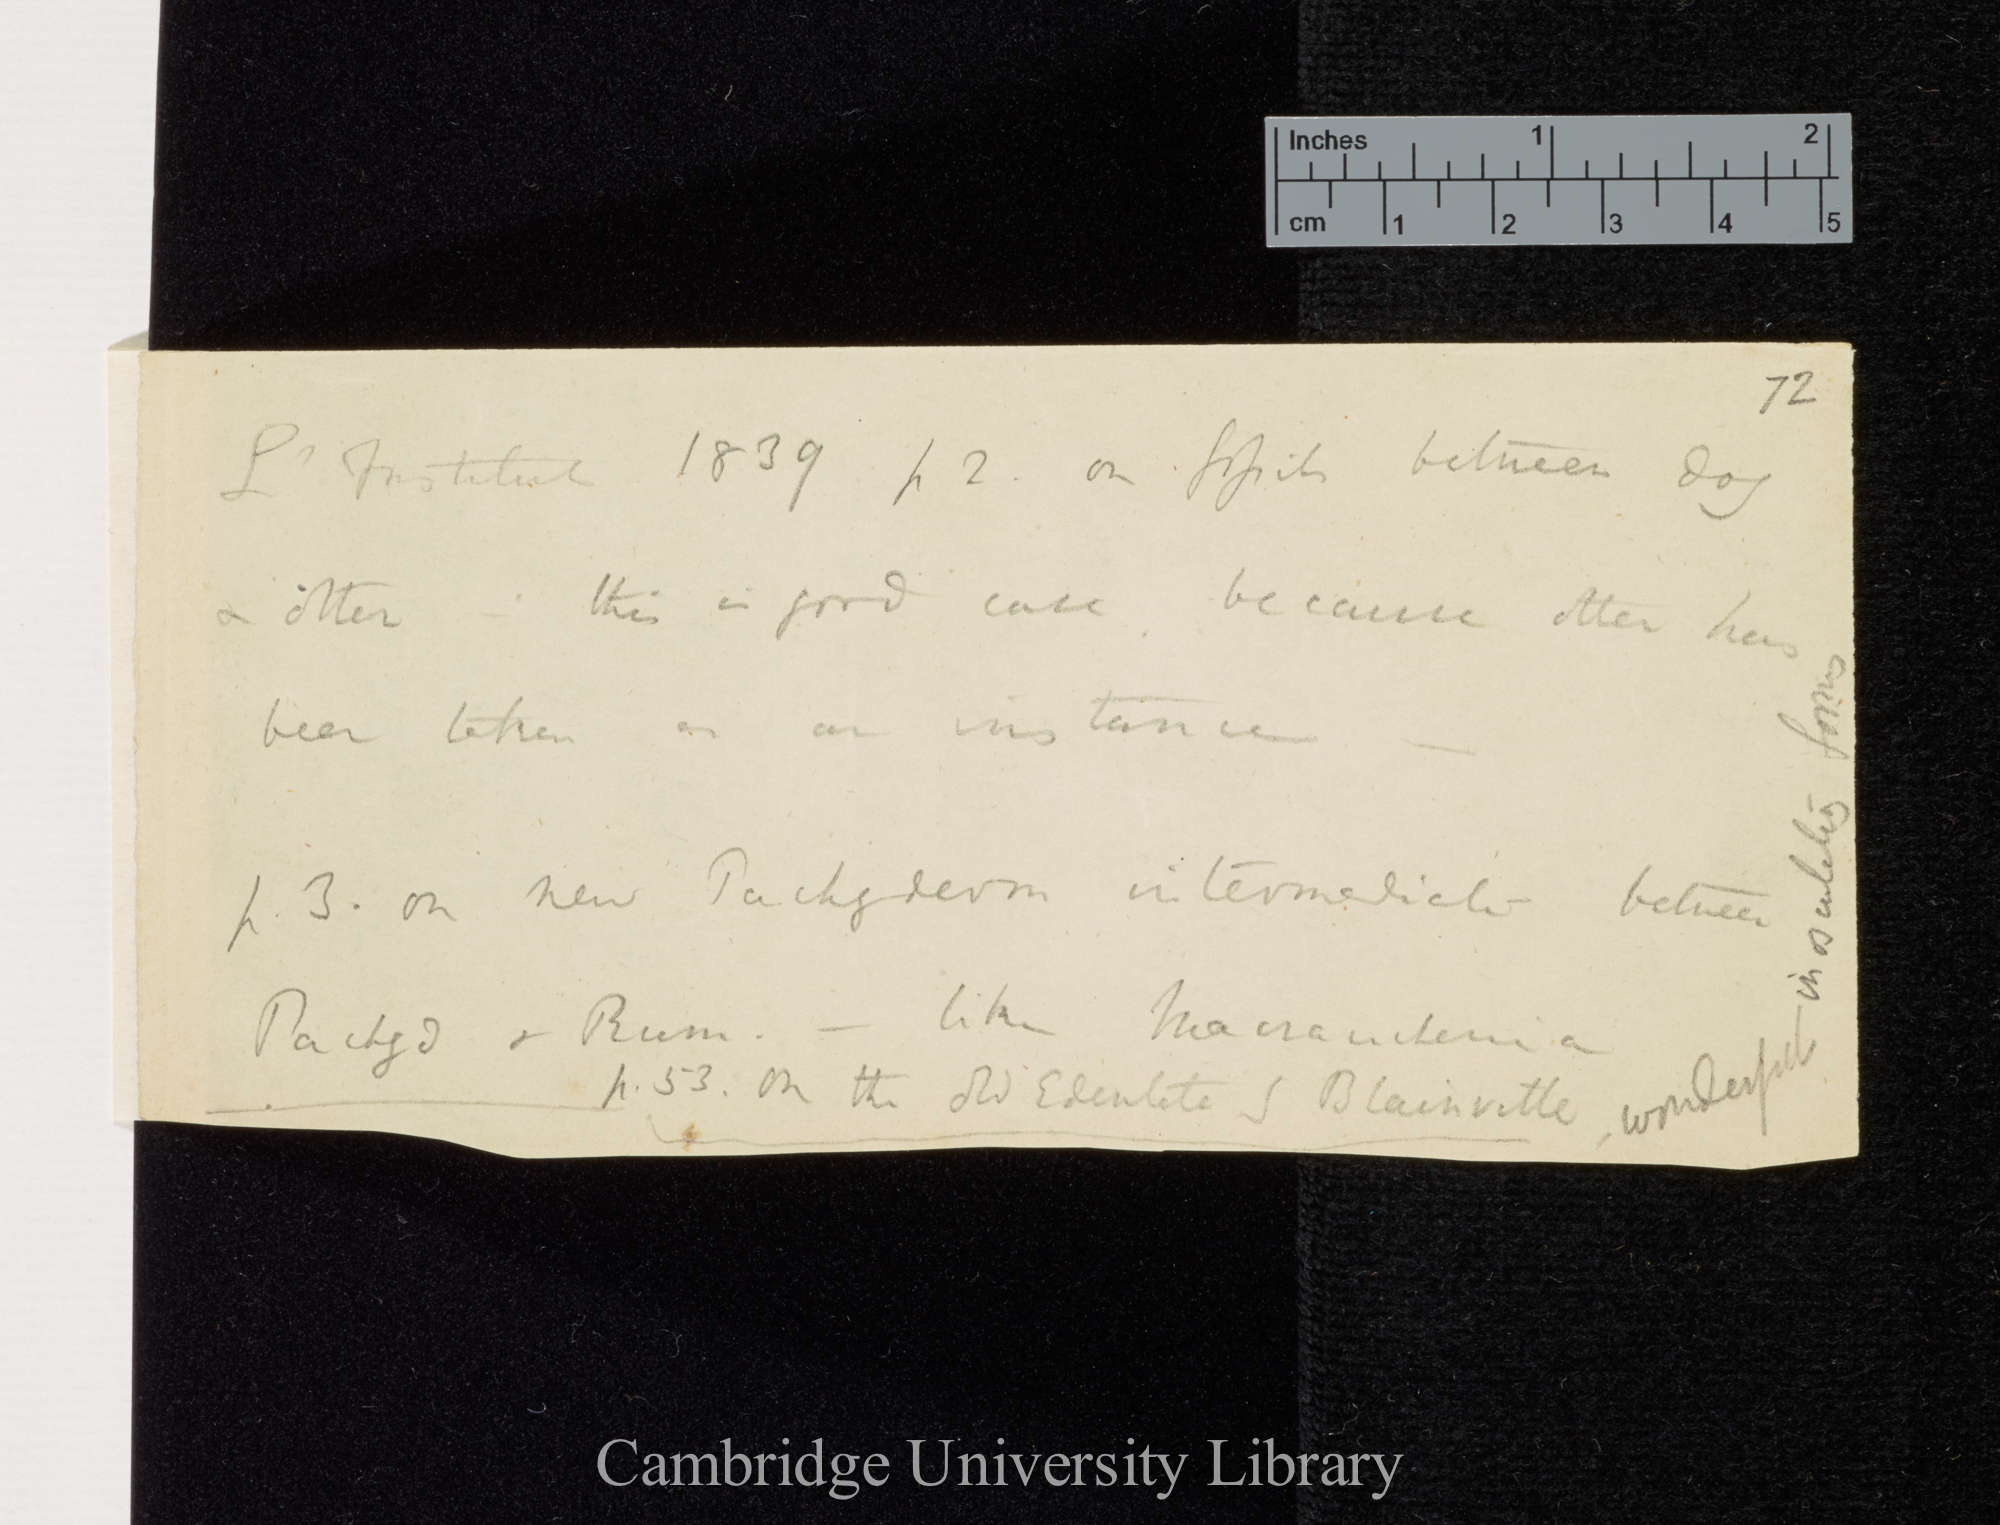 Inches 1 2
cm 1 2 3 4 5
72
L'Institut 1839 p 2. on fossils between dog
& otter — this is good case, because otter has
been taken as an instance —
p. 3. on new Pachyderm intermediate between
Pachyd & Rum. — like Macrauchenia
p. 53. on the old Edentate of Blainville, wonderful inosculating forms
Cambridge University Library